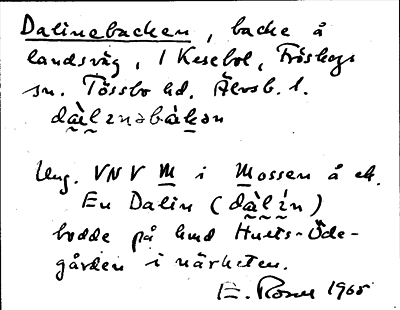 Dalinebacken, backe å
landsväg, i Kesebol, Fröskogs
sn. Tössbo hd. Älvsb. l.
dàlınəbàkən
Ung. VNV M i Mossen å ek.
En Dalin (dàlín)
bodde på hmd Huets-Öde-
gården i närheten.
E. Rosen 1965